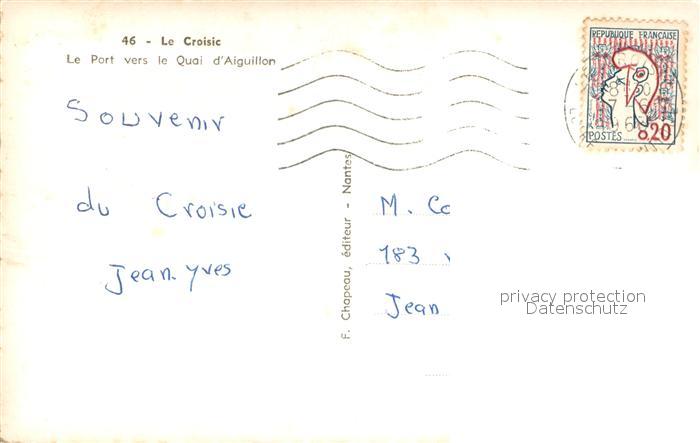 46 - Le Croisic
Le Port vers le Quai d'Aiguillon
REPUBLIQUE FRANÇAISE
POSTES 0.20
Souvenir
du Croisic
Jean.Yves
F. Chapeau, éditeur - Nantes
M. Co
183
Jean
privacy protection
Datenschutz